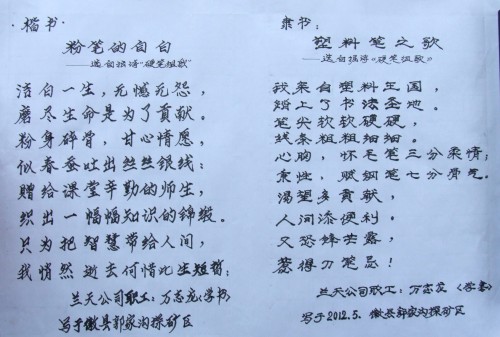 楷书:
粉笔的自白
——选自拙诗“硬笔组歌”
洁白一生,无憾无怨,
磨尽生命是为了贡献。
粉身碎骨,甘心情愿,
似春蚕吐出丝丝银线:
赠给课堂辛勤的师生,
织出一幅幅知识的锦缎。
只为把智慧带给人间,
我悄然逝去何惜此生短暂;
兰天公司职工:万志发(学书)
写于徽县郭家沟探矿区
隶书:
塑料笔之歌
——选自拙诗“硬笔组歌”
我来自塑料王国,
踏上了书法圣地。
笔尖软软硬硬,
线条粗粗细细。
心胸,怀毛笔三分柔情;
秉性,赋钢笔七分骨气。
渴望多贡献,
人间添便利。
又恐锋芒露,
惹得刀笔忌!
兰天公司职工:万志发(学書)
写于2012.5.徽县郭家沟探矿区